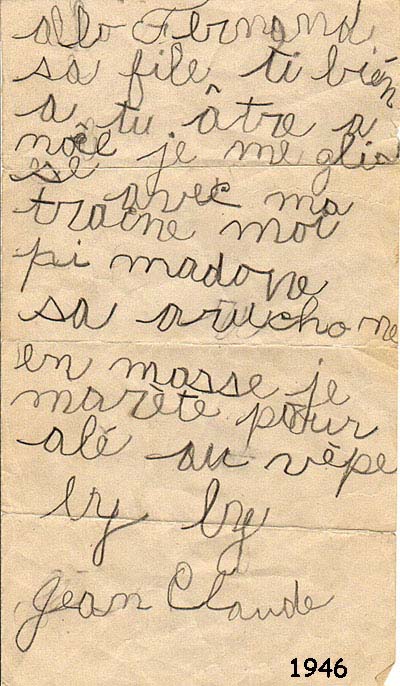 allo Fernand
sa file ti bién
a tu âtre a
noêe je me gliss
se avec ma
traine moi
pi madone
sa aruchone
en masse je
marête pour
alé au vêpe
by by
Jean Claude
1946